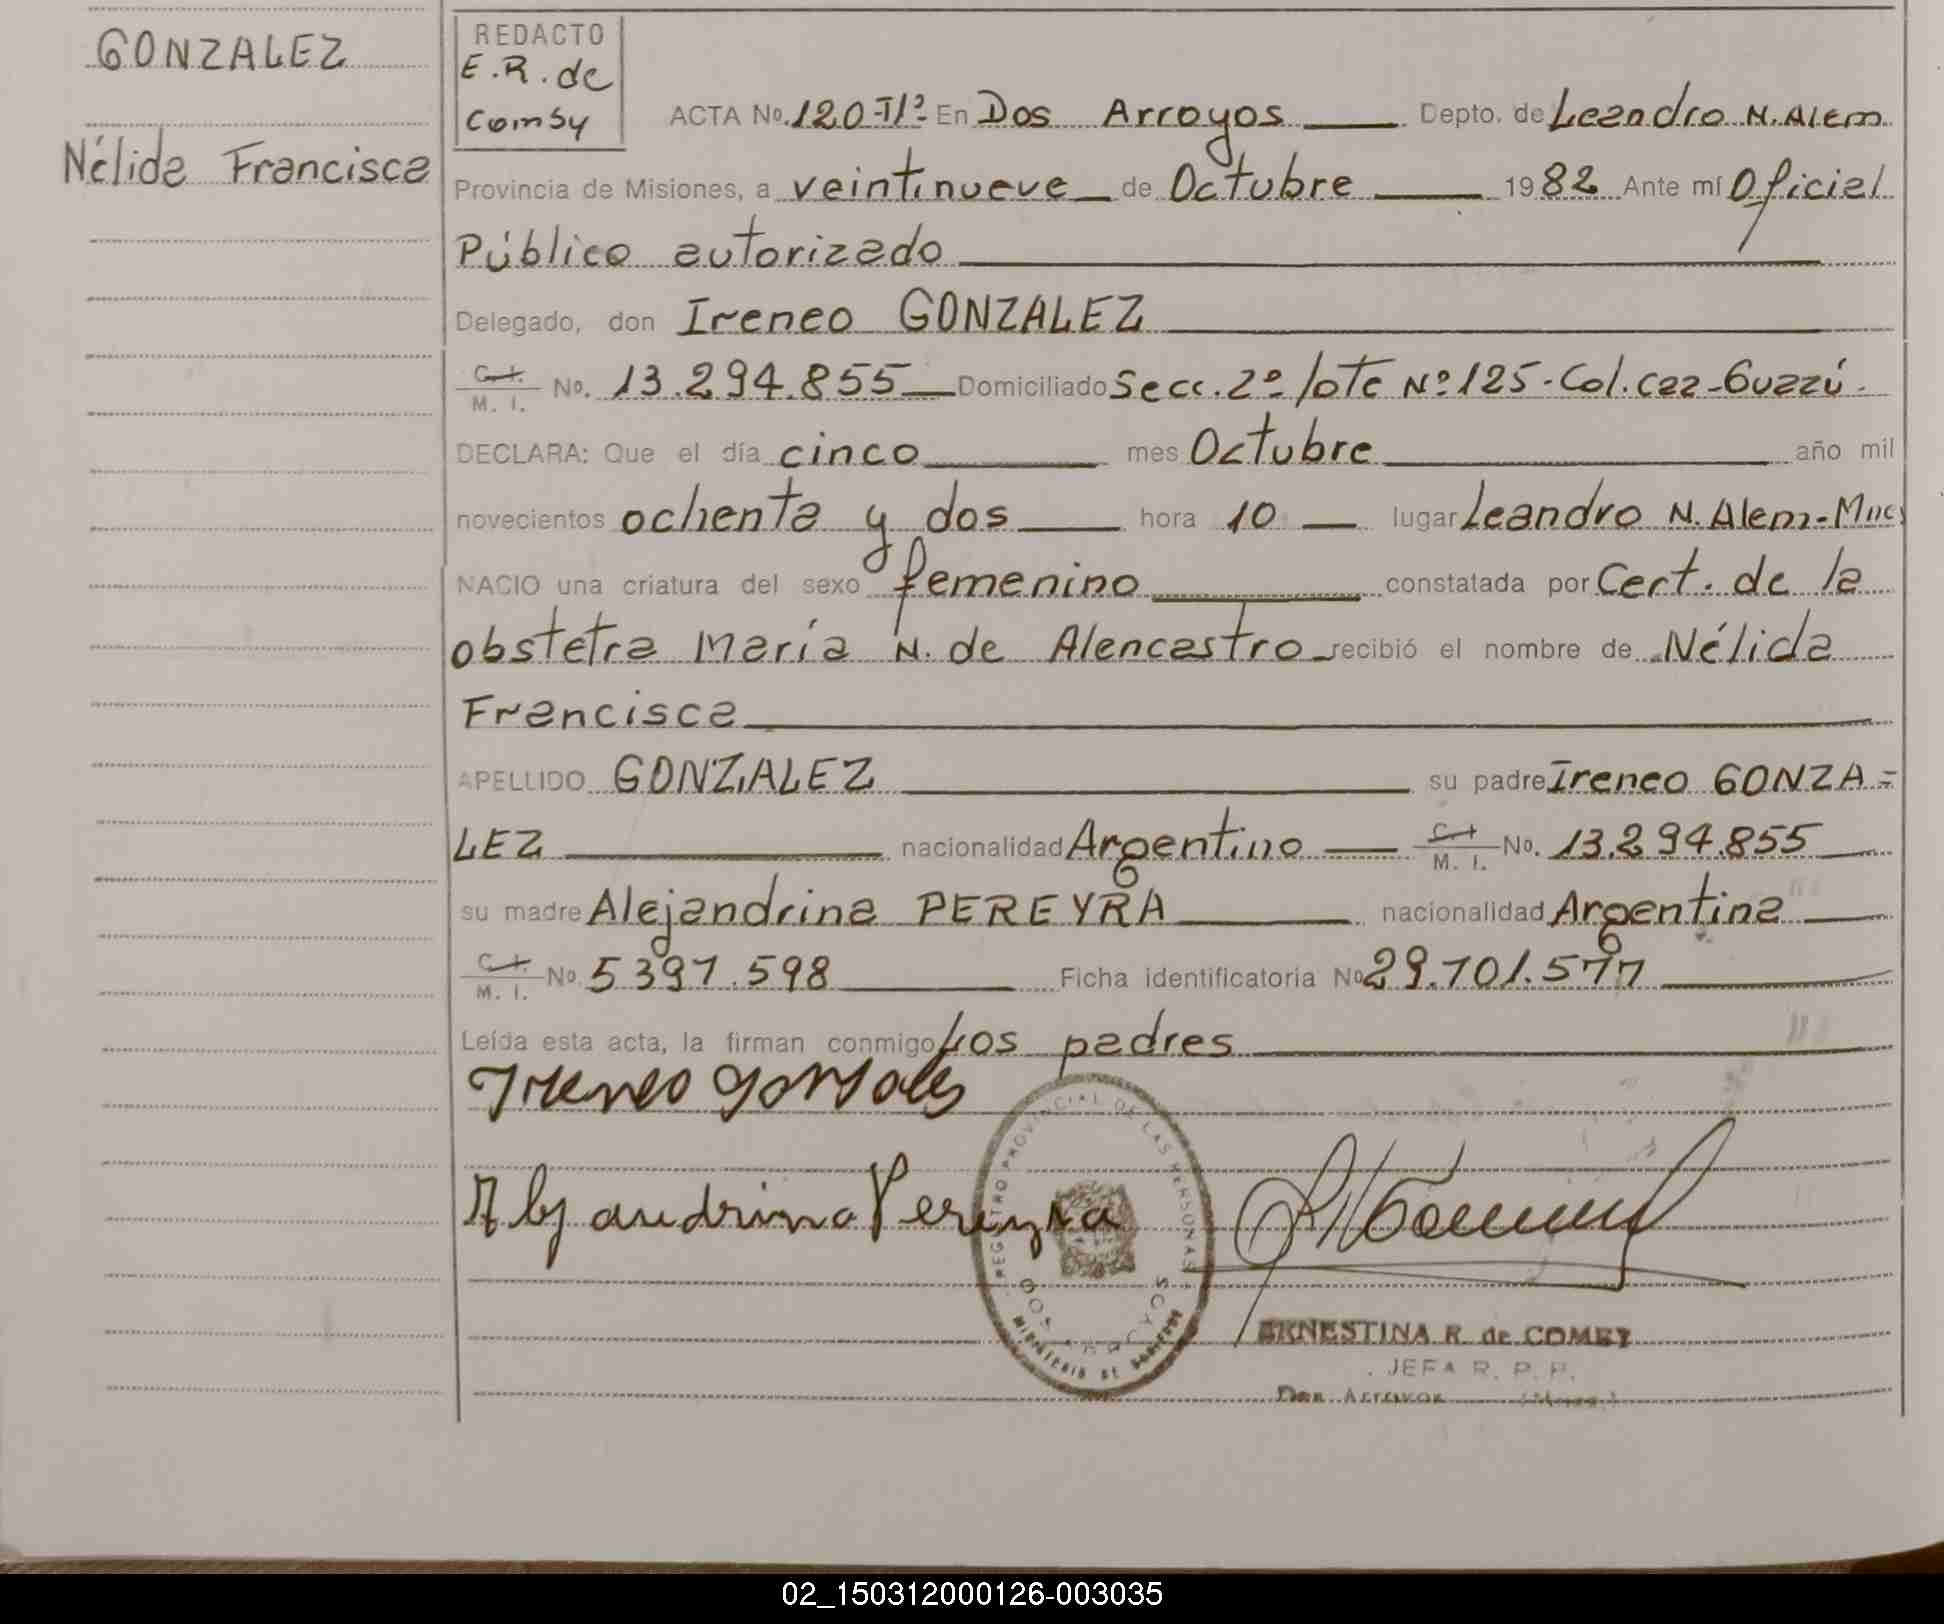 GONZALEZ
Nélida Francisca
REDACTO
E.R. de
Comby
ACTA No. 120-Tº II- En Dos Arroyos Depto. de Leandro N. Alem
Provincia de Misiones, a veintinueve de Octubre 1982 Ante mí Oficial
Público autorizado
Delegado, don Ireneo GONZALEZ
C. I. / M. I. No. 13.294.855 Domiciliado Secc. 2º lote Nº 125-Col. Caa-Guazú-
DECLARA: Que el día cinco mes Octubre año mil
novecientos ochenta y dos hora 10 lugar Leandro N. Alem-Mnes
NACIO una criatura del sexo femenino constatada por Cert. de la
obstetra María N. de Alencastro recibió el nombre de Nélida
Francisca
APELLIDO GONZALEZ su padre Ireneo GONZA=
LEZ nacionalidad Argentino C. I. / M. I. No. 13.294.855
su madre Alejandrina PEREYRA nacionalidad Argentina
C. I. / M. I. No. 5397.598 Ficha identificatoria No 29.701.577
Leída esta acta, la firman conmigo Los padres
Ireneo Gonsales
Alejandrina Pereyra
REGISTRO PROVINCIAL DE LAS PERSONAS
DOS ARROYOS
MINISTERIO DE GOBIERNO
ERNESTINA R. de COMBY
JEFA R. P. P.
Dos Arroyos (Mnes.)
02_150312000126-003035